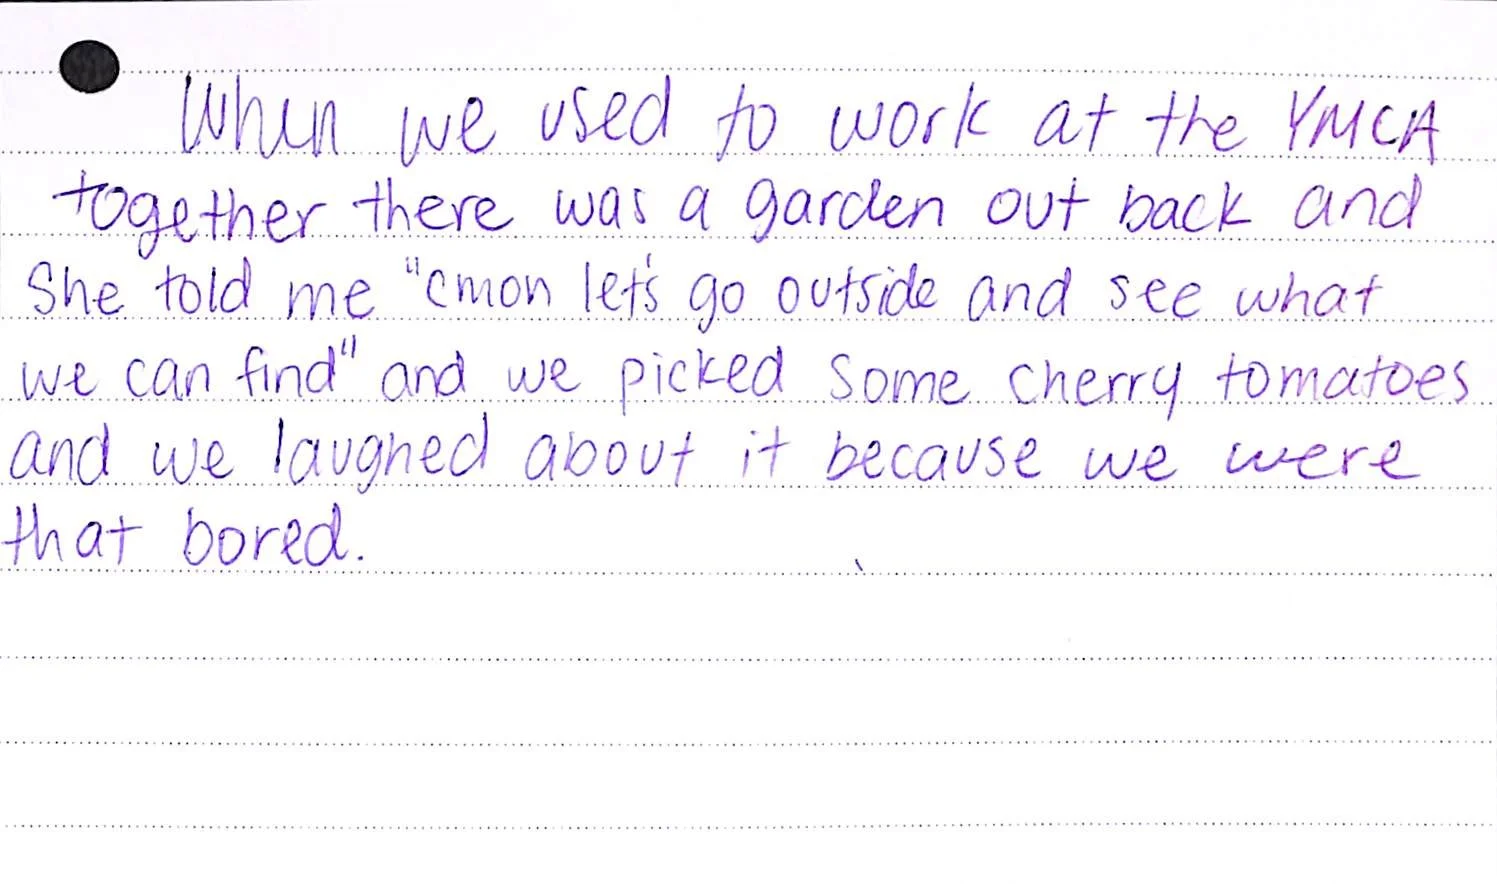 When we used to work at the YMCA
together there was a garden out back and
She told me "cmon let's go outside and see what
we can find" and we picked some cherry tomatoes
and we laughed about it because we were
that bored.